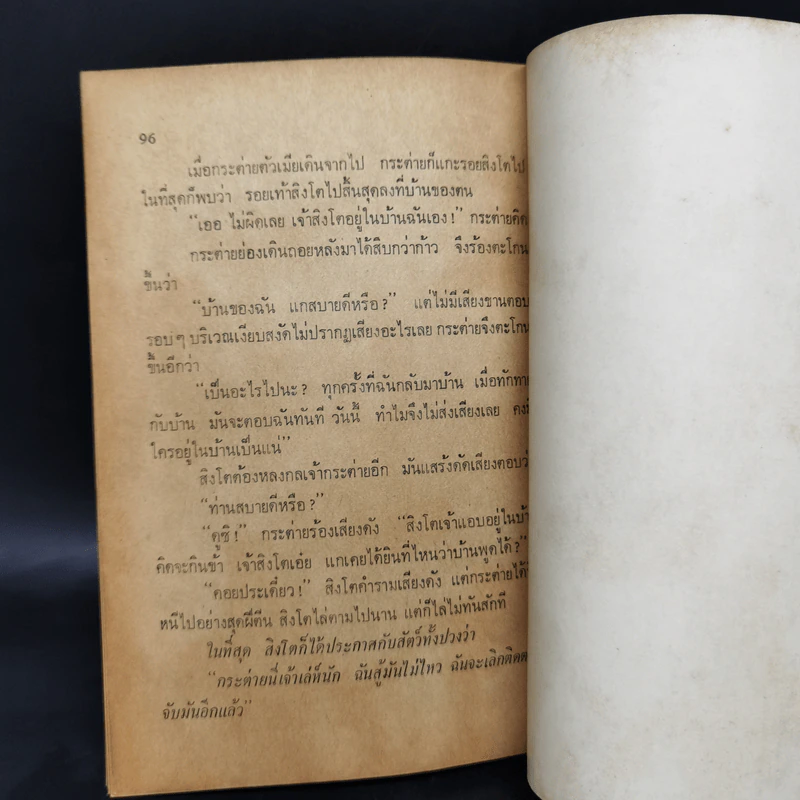 96
เมื่อกระต่ายตัวเมียเดินจากไป กระต่ายก็แกะรอยสิงโตไป
ในที่สุดก็พบว่า รอยเท้าสิงโตไปสิ้นสุดลงที่บ้านของตน
“เออ ไม่ผิดเลย เจ้าสิงโตอยู่ในบ้านฉันเอง!” กระต่ายคิด
กระต่ายย่องเดินถอยหลังมาได้สิบกว่าก้าว จึงร้องตะโกน
ขึ้นว่า
“บ้านของฉัน แกสบายดีหรือ?” แต่ไม่มีเสียงขานตอบ
รอบๆ บริเวณเงียบสงัดไม่ปรากฏเสียงอะไรเลย กระต่ายจึงตะโกน
ขึ้นอีกว่า
“เป็นอะไรไปนะ? ทุกครั้งที่ฉันกลับมาบ้าน เมื่อทักทาย
กับบ้าน มันจะตอบฉันทันที วันนี้ ทำไมจึงไม่ส่งเสียงเลย
ใครอยู่ในบ้านเป็นแน่”
สิงโตต้องหลงกลเจ้ากระต่ายอีก มันแสร้งดัดเสียงตอบ
“ท่านสบายดีหรือ?”
“ดูซิ!” กระต่ายร้องเสียงดัง “สิงโตเจ้าแอบอยู่ใน
คิดจะกินข้า เจ้าสิงโตเอ๋ย แกเคยได้ยินที่ไหนว่าบ้านพูดได้?”
“คอยประเดี๋ยว!” สิงโตคำรามเสียงดัง แต่กระต่ายได้
หนีไปอย่างสุดฝีตีน สิงโตไล่ตามไปนาน แต่ก็ไล่ไม่ทันสักที
ในที่สุด สิงโตก็ได้ประกาศกับสัตว์ทั้งปวงว่า
“กระต่ายนี่เจ้าเล่ห์นัก ฉันสู้มันไม่ไหว ฉันจะเลิก
จับมันอีกแล้ว”